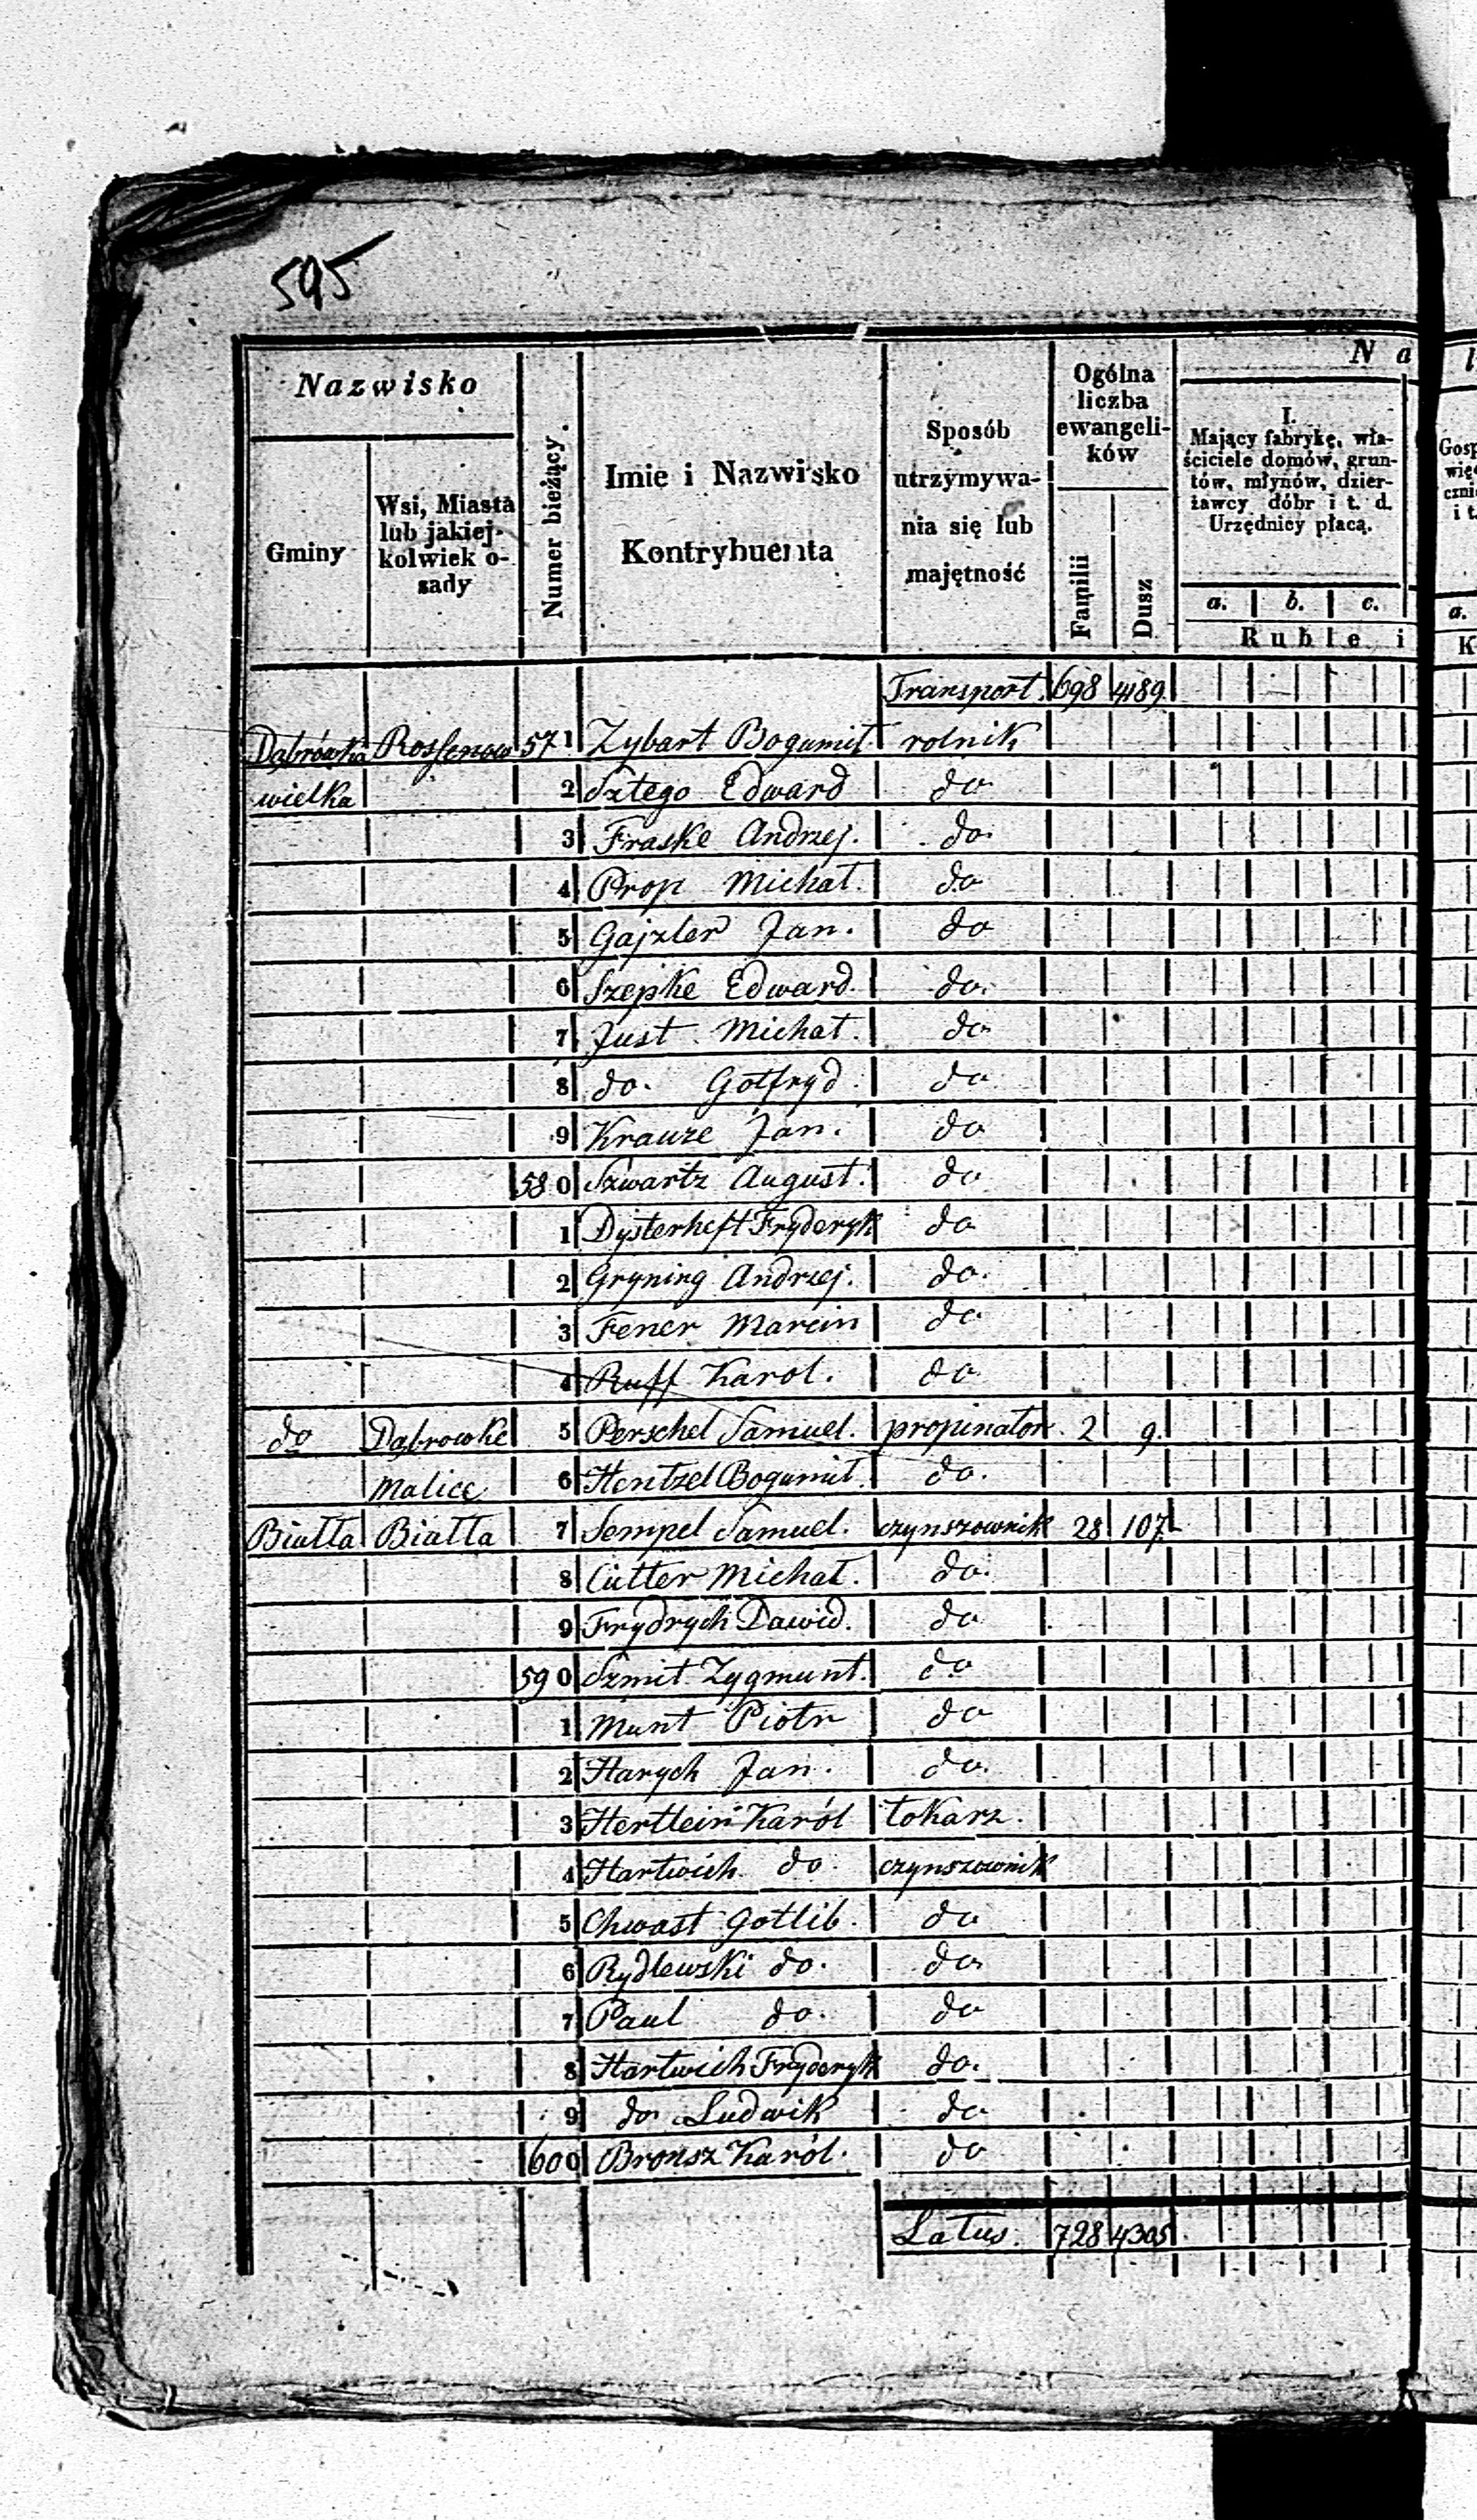 595
Nazwisko
Gminy
Wsi, Miasta
lub jakiej-
kolwiek o-
sady
Numer bieżący.
Imie i Nazwisko
Kontrybuenta
Sposób
utrzymywa-
nia się lub
majętność
Ogólna
liczba
ewangeli-
ków
Familii
Dusz
N a
I.
Mający fabrykę, wła-
ściciele domów, grun-
tów, młynów, dzier-
żawcy dóbr i t. d.
Urzędnicy płacą.
a. b. c.
Ruble i
Transport. 698 4189
Dąbrówka Rossenow 571 Zybart Bogumił rolnik
wielka 2 Sztego Edward do
3 Fraske Andrzej. do.
4 Prop Michał. do
5 Gajzler Jan. do
6 Szepke Edward do.
7 Just Michał. do
8 do. Gotfryd do
9 Krauze Jan. do
580 Szwartz August. do
1 Dysterheft Fryderyk do
2 Gryning Andrzej. do.
3 Fener Marcin do
4 Ruff Karol. do
do Dąbrowke 5 Perschel Samuel. propinator. 2 9
Malice 6 Hentzel Bogumił do.
Białła Białła 7 Sempel Samuel. czynszownik 28 107
8 Cutter Michał. do.
9 Frydrych Dawid. do
590 Szmit Zygmunt. do
1 Munt Piotr do
2 Harych Jan. do.
3 Hertlein Karól tokarz.
4 Hartwich do. czynszownik
5 Chwast Gotlib. do
6 Rydlewski do. do
7 Paul do. do
8 Hartwich Fryderyk do.
9 do Ludwik do
600 Bronsz Karól. do
Latus. 728 4305